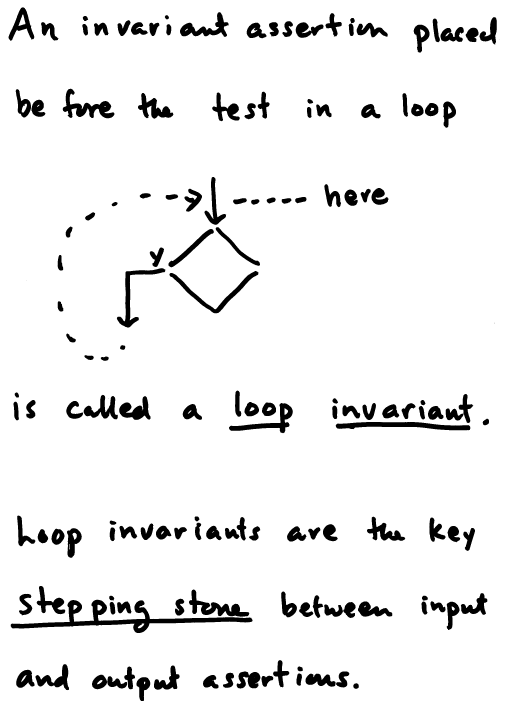 An invariant assertion placed
before the test in a loop
here
Y
is called a loop invariant.
Loop invariants are the key
stepping stone between input
and output assertions.